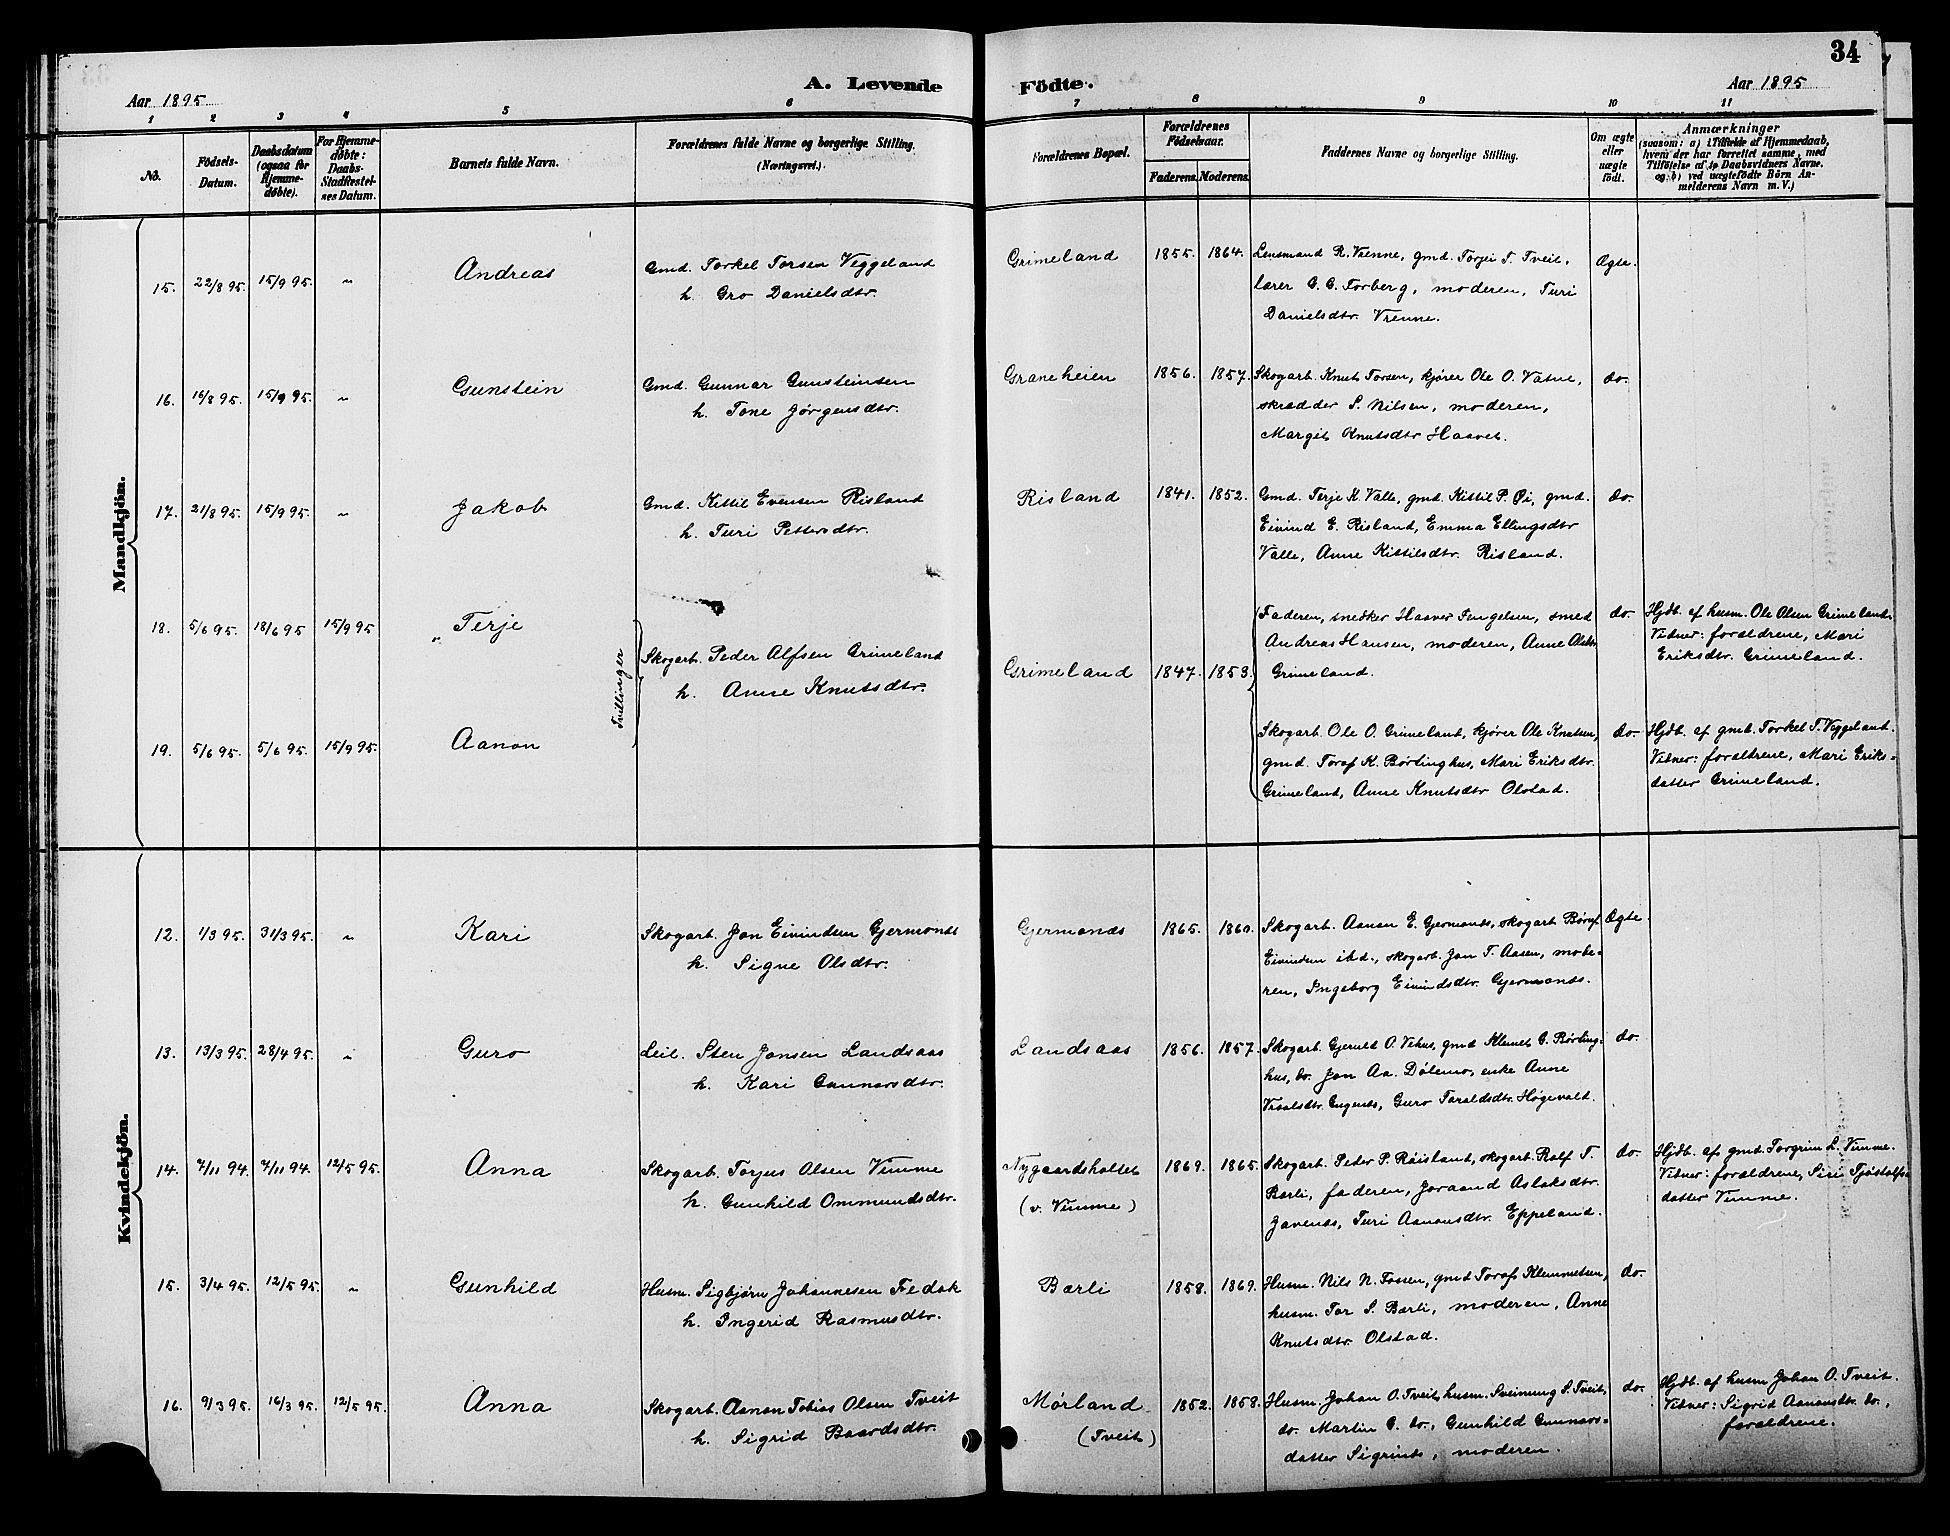 34
A. Levende Födte.
Aar 1895
Aar 1895
1 2 3 4 5 6 7 8 9 10 11
No.
Födsels-
Datum.
Daabsdatum
(ogsaa for
Hjemme-
döbte).
For Hjemme-
döbte:
Daabs-
Stadfæstel-
ses Datum.
Barnets fulde Navn.
Forældrenes fulde Navne og borgerlige Stilling.
(Næringsvei.)
Forældrenes Bopæl.
Forældrenes
Födselsaar.
Faderens. Moderens.
Faddernes Navne og borgerlige Stilling.
Om ægte
eller
uægte
födt.
Anmærkninger
(saasom: a) i Tilfælde af Hjemmedaab,
hvem der har forrettet samme, med
Tilföielse af to Daabsvidners Navne.
og b) ved uægtefödte Börn An-
melderens Navn m. V.)
Mandkjön.
15. 22/8 95. 15/9 95. " Andreas
Gmd. Torkel Torsen Veggeland
h. Gro Danielsdtr.
Grimeland 1855. 1864.
Lensmand R. Vrenne, gmd. Torjei T. Tveit,
lærer G. G. Forberg, moderen, Turi
Danielsdtr. Vrenne.
Ægte.
16. 16/8 95. 15/9 95. " Gunstein
Gmd. Gunnar Gunsteinsen
h. Tone Jörgensdtr.
Graneheien 1856. 1857.
Skogarb. Knut Torsen, kjører Ole O. Vatne,
skrædder S. Nilsen, moderen,
Margit Knutsdtr Haavet.
do.
17. 21/8 95. 15/9 95. " Jakob
Gmd. Kittil Evensen Risland
h. Turi Pettersdtr.
Risland 1841. 1852.
Gmd. Terje K. Valle, gmd. Kittil P. Øi, gmd.
Eivind E. Risland, Emma Ellingsdtr
Valle, Anne Kittilsdtr. Risland.
do.
18. 5/6 95. 18/6 95 15/9 95 Terje
Tvillinger
Skogarb. Peder Alfsen Grimeland
h. Anne Knutsdtr.
Grimeland 1847. 1853.
Faderen, snedker Haaver Fengelsen, smed
Andreas Hansen, moderen, Anne Olsdtr
Grimeland.
do.
Hjdb. af husm. Ole Olsen Grimeland.
Vidner: forældrene, Mari
Eriksdtr. Grimeland.
19. 5/6 95. 5/6 95. 15/9 95. Aanon
Skogarb. Ole O. Grimeland, kjører Ole Knutsen,
gmd. Toraf K. Børlinghus, Mari Eriksdtr.
Grimeland, Anne Knutsdtr Olstad.
do.
Hjdb. af gmd. Torkel T. Veggeland.
Vidner: forældrene, Mari Eriks-
datter Grimeland.
Kvindekjön.
12. 1/3 95. 31/3 95. " Kari
Skogarb. Jon Eivindsen Gjermonds
h. Signe Olsdtr.
Gjermonds 1865. 1860.
Skogarb. Aanon E. Gjermonds, skogarb
Eivindsen ibd., skogarb. Jon T. Aasen, mode-
ren, Ingeborg Eivindsdtr. Gjermonds.
Ægte.
13. 13/3 95. 28/4 95. " Guro
Leil. Sten Jonsen Landsaas
h. Kari Gunnarsdtr.
Landsaas 1856. 1857.
Skogarb. Gjeruld O. Vehus, gmd Klemet G. Børling-
hus, do. Jon Aa. Dölemo, enke Anne
Guro Taraldsdtr. Högevold.
do.
14. 7/11 94. 7/11 94. 12/5 95. Anna
Skogarb. Torjus Olsen Vimme
h. Gunhild Ommundsdtr.
Nygaardsholtet
(v. Vimme)
1869. 1865.
Skogarb. Peder P. Røisland, skogarb. Rolf T.
Barli, faderen, Joraand Aslaksdtr.
Javends, Turi Aanonsdtr. Eppeland.
do.
Hjdb. af gmd. Torgrim L. Vimme.
Vidner: forældrene, Siri Tjöstolfs-
datter Vimme.
15. 3/4 95. 12/5 95. " Gunhild
Husm. Sigbjørn Johannesen Fedøk
h. Ingerid Rasmusdtr.
Barli 1858. 1869.
Husm. Nils N. Fossen, gmd Toraf Klemmetsen,
husm. Tor S. Barli, moderen, Anne
Knutsdtr. Olstad.
do.
16. 9/3 95. 16/3 95. 12/5 95. Anna
Skogarb. Aanon Tobias Olsen Tveit
h. Sigrid Baardsdtr.
Mørland
(Tveit)
1852. 1858.
Husm. Johan O. Tveit, husm. Sveinung S. Tveit,
do. Martin G. do., Gunhild Gunnars-
datter Sigrinds, moderen.
do.
Hjdb. af husm Johan O. Tveit.
Vidner: Sigrid Aanonsdtr. do.,
forældrene.